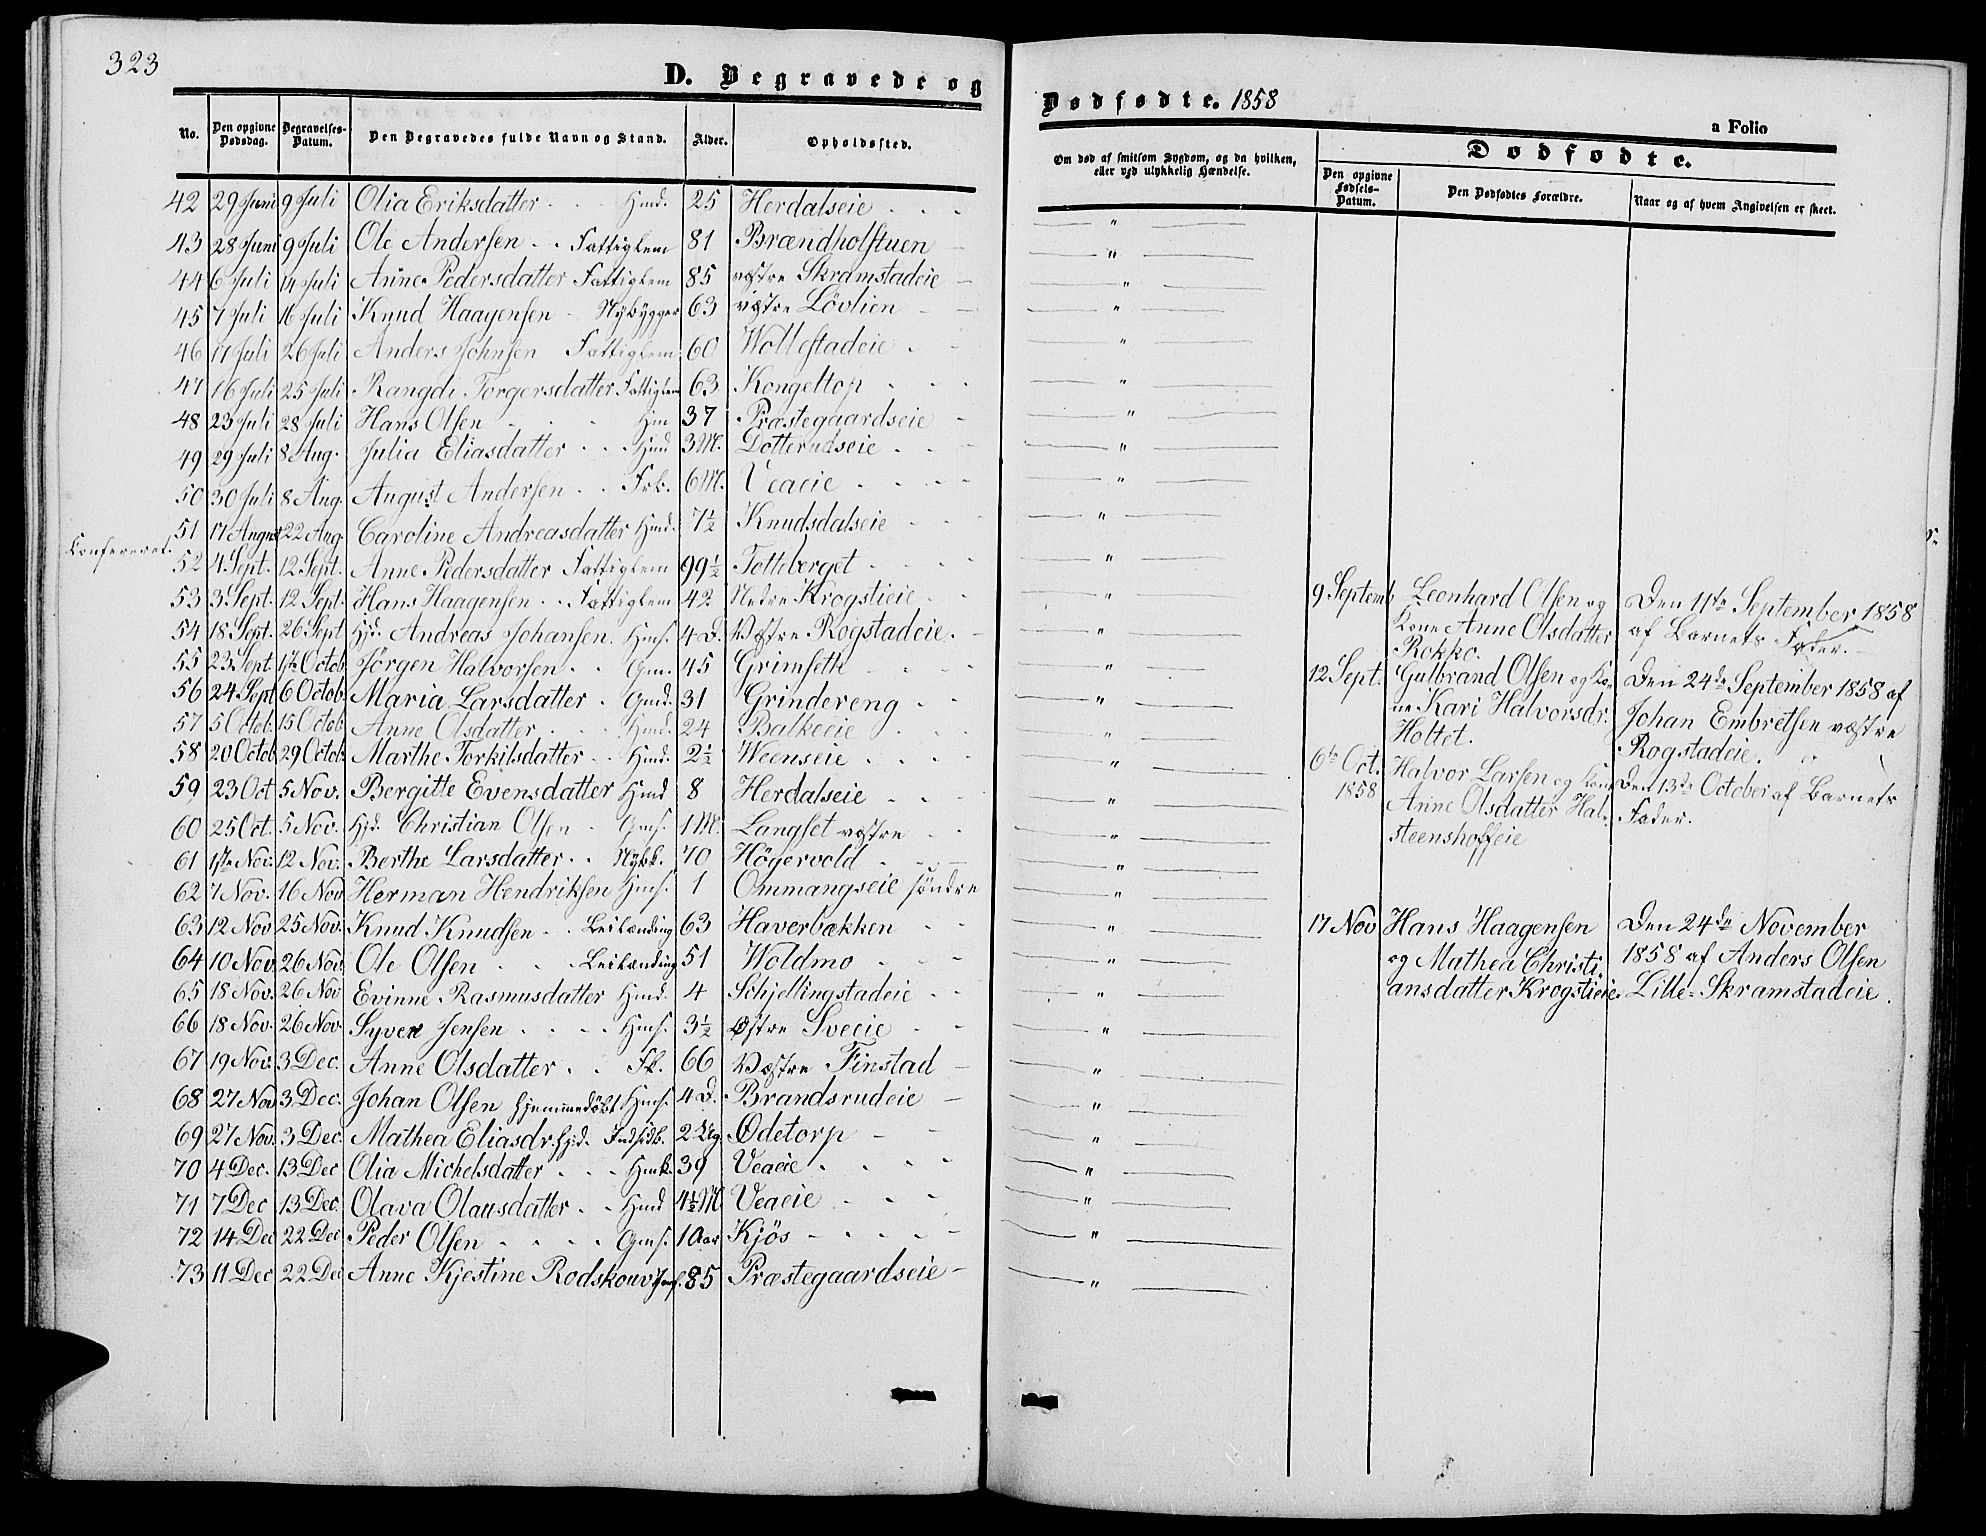 323
D. Begravede og
No. Den opgivne Dødsdag. Begravelses-Datum. Den Begravedes fulde Navn og Stand. Alder. Opholdssted.
42 29 Juni 9 Juli Olia Eriksdatter - - Hmd. 25 Herdalseie - - -
43 28 Juni 9 Juli Ole Andersen - - Fattiglem 81 Brændholstuen -
44 6 Juli 14 Juli Anne Pedersdatter Fattiglem 85 vestre Skramstadeie -
45 7 Juli 16 Juli Knud Haagensen - Nybygger 63 vestre Lövlien - -
46 17 Juli 26 Juli Anders Johnsen Fattiglem 60 Wollestadeie - -
47 16 Juli 25 Juli Rangdi Torgersdatter Fattiglem 63 Kongeltop - - -
48 23 Juli 28 Juli Hans Olsen - - - Hm 37 Præstegaardseie -
49 29 Juli 8 Aug. Julia Eliasdatter - - Hmd 3 M. Dotterudseie - - -
50 30 Juli 8 Aug. August Andersen - - Frk. 6 M. Veaeie - - - -
51 17 August 22 Aug. Caroline Andreasdatter Hmd. 7½ Knudsdalseie - - -
Konfereret.
52 4 Sept. 12 Sept. Anne Pedersdatter Fattiglem 99½ Totteberget - - - -
53 3 Sept. 12 Sept. Hans Haagensen - - Fattiglem 42 Nedre Krogstieie - -
54 18 Sept. 26 Sept Hjd. Andreas Johansen. Hms. 4 D. Vestre Rogstadeie. -
55 23 Sept 1ste Octob. Jørgen Halvorsen - - Gm. 45 Grimseth - - -
56 24 Sept 6 Octob. Maria Larsdatter - Gmd. 31 Grindereng - -
57 5 Octob. 15 Octob. Anne Olsdatter - - Hmd. 24 Balkeeie - - -
58 20 Octob 29 Octob. Marthe Torkilsdatter - - Hmd. 2½ Weenseie - - - -
59 23 Oct 5 Nov. Bergitte Evensdatter Hmd 8 Herdalseie - - -
60 25 Oct. 5 Nov. Hjd. Christian Olsen - Gms. 1 M. Langset vestre - -
61 1ste Nov. 12 Nov. Berthe Larsdatter - - Nybk. 70 Högervold - - - -
62 7 Nov. 16 Nov Herman Hendriksen Hms. 1 Ommangseie søndre
63 12 Nov 25 Nov. Knud Knudsen - - Leilænding 63 Haverbækken - -
64 10 Nov. 26 Nov Ole Olsen - - - Leilænding 51 Woldmo - - -
65 18 Nov. 26 Nov Evinne Rasmusdatter Hmd. 4 Schjellingstadeie - -
66 18 Nov. 26 Nov. Syver Jensen - - - - Hms. 3½ Østre Sveeie - -
67 19 Nov. 3 Dec. Anne Olsdatter - - Fk. 66 Vestre Finstad -
68 27 Nov 3 Dec. Johan Olsen hjemmedöbt Hms. 4 D. Brandsrudeie -
69 27 Nov. 3 Dec. Mathea Eliasdr. hjd. Indsidb. 2 Ug. Ödetorp - -
70 4 Dec. 13 Dec Olia Michelsdatter - - - Hmk. 39 Veaeie - - - -
71 7 Dec 13 Dec. Olava Olausdatter - - Hmd 4½ M Veaeie - - -
72 14 Dec 22 Dec Peder Olsen - - - - Gms. 1 Aar Kjös - - - - -
73 11 Dec 22 Dec Anne Kjestine Rodskouv 85 Præstegaardseie -
Dødfødte. 1858
a Folio
Om død af smitsom Sygdom, og da hvilken, eller ved ulykkelig Hændelse.
Dødfødte.
Den opgivne Fødsels-Datum. Den Dødfødtes Forældre. Naar og af hvem Angivelsen er skeet.
9 Septemb Leonhard Olsen og Den 11te September 1858
Kone Anne Olsdatter af Barnets Fader.
Rokko.
12 Sept. Gulbrand Olsen og Ko- Den 24de September 1858 af
ne Kari Halvorsdr. Johan Embretsen vestre
Holtet. Rogstadeie.
6te Oct. Halvor Larsen og Kone Den 13de October af Barnets
1858 Anne Olsdatter Hal- Fader.
steenshoffeie
17 Nov Hans Haagensen Den 24de November
og Mathea Christi- 1858 af Anders Olsen
ansdatter Krogstieie. Lille-Skramstadeie.